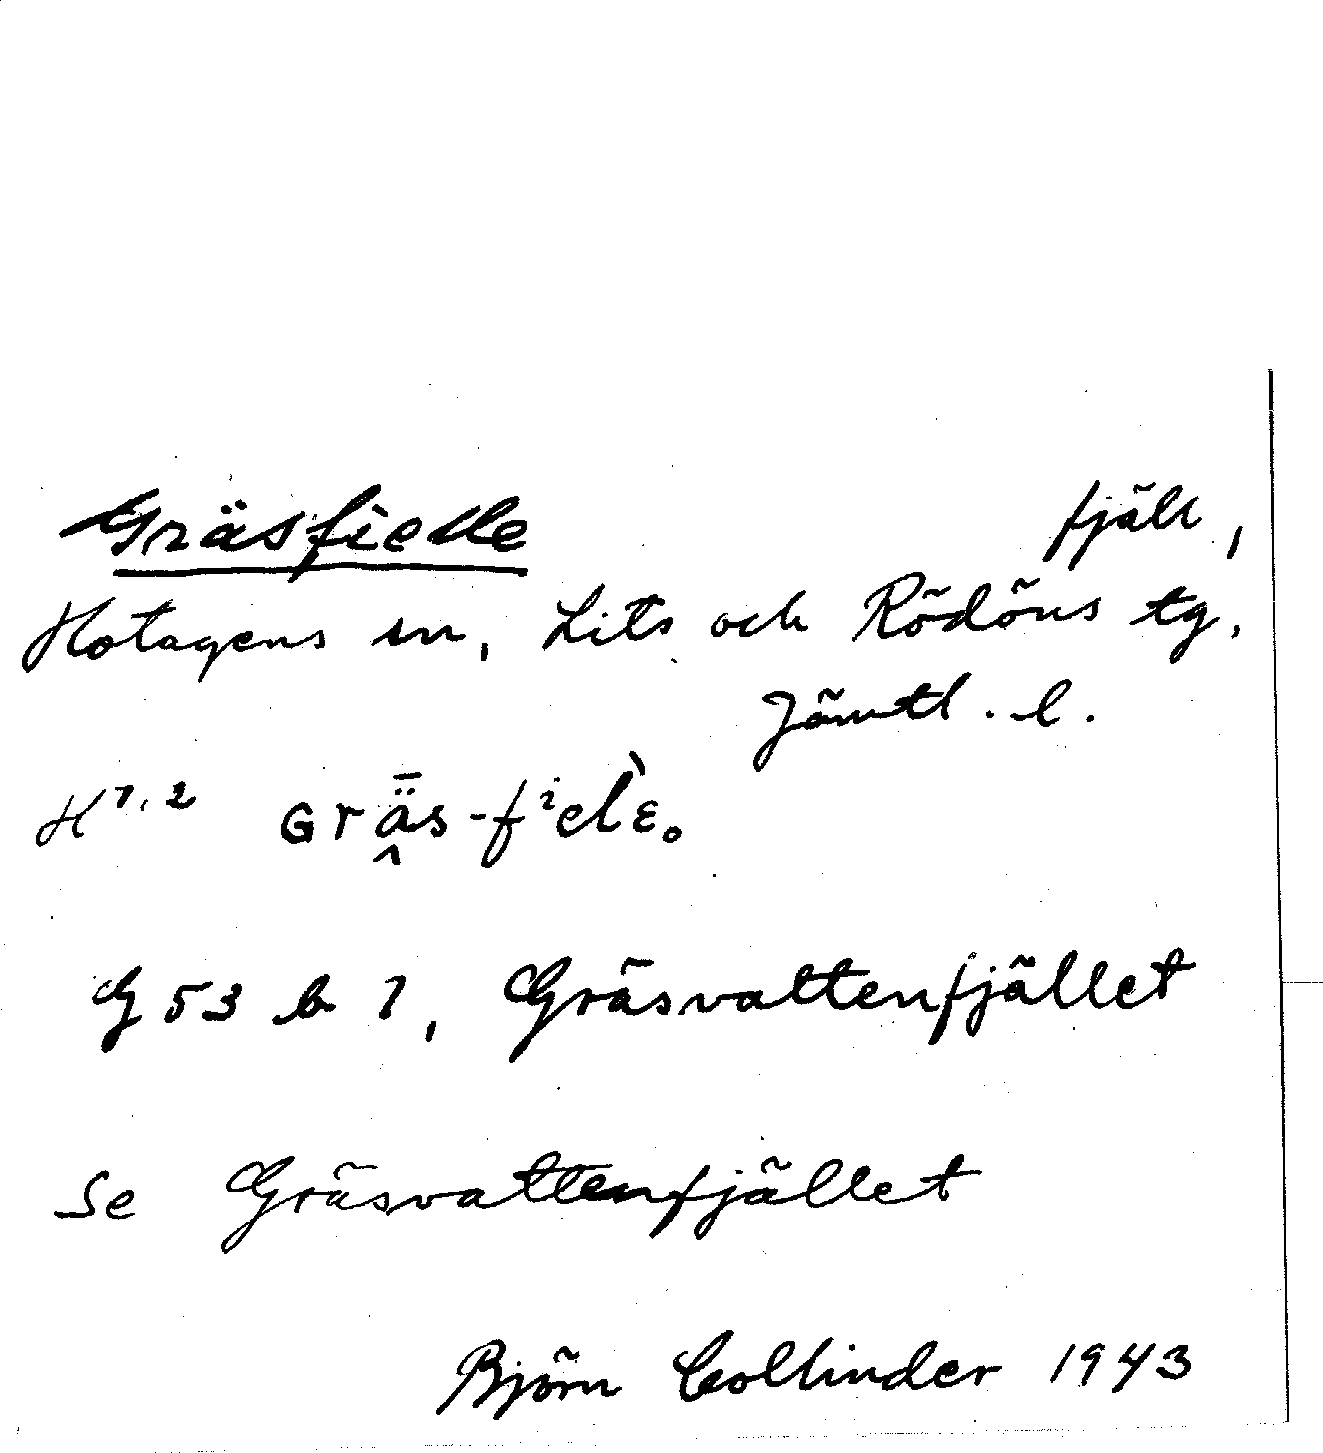 Gräsfielle fjäll,
Hotagens sn, Lits och Rödöns tg,
Jämtl. l.
H 1, 2 Gräs-fielε.
G 53 b 1, Gräsvattenfjället
Se Gräsvattenfjället
Björn Collinder 1943